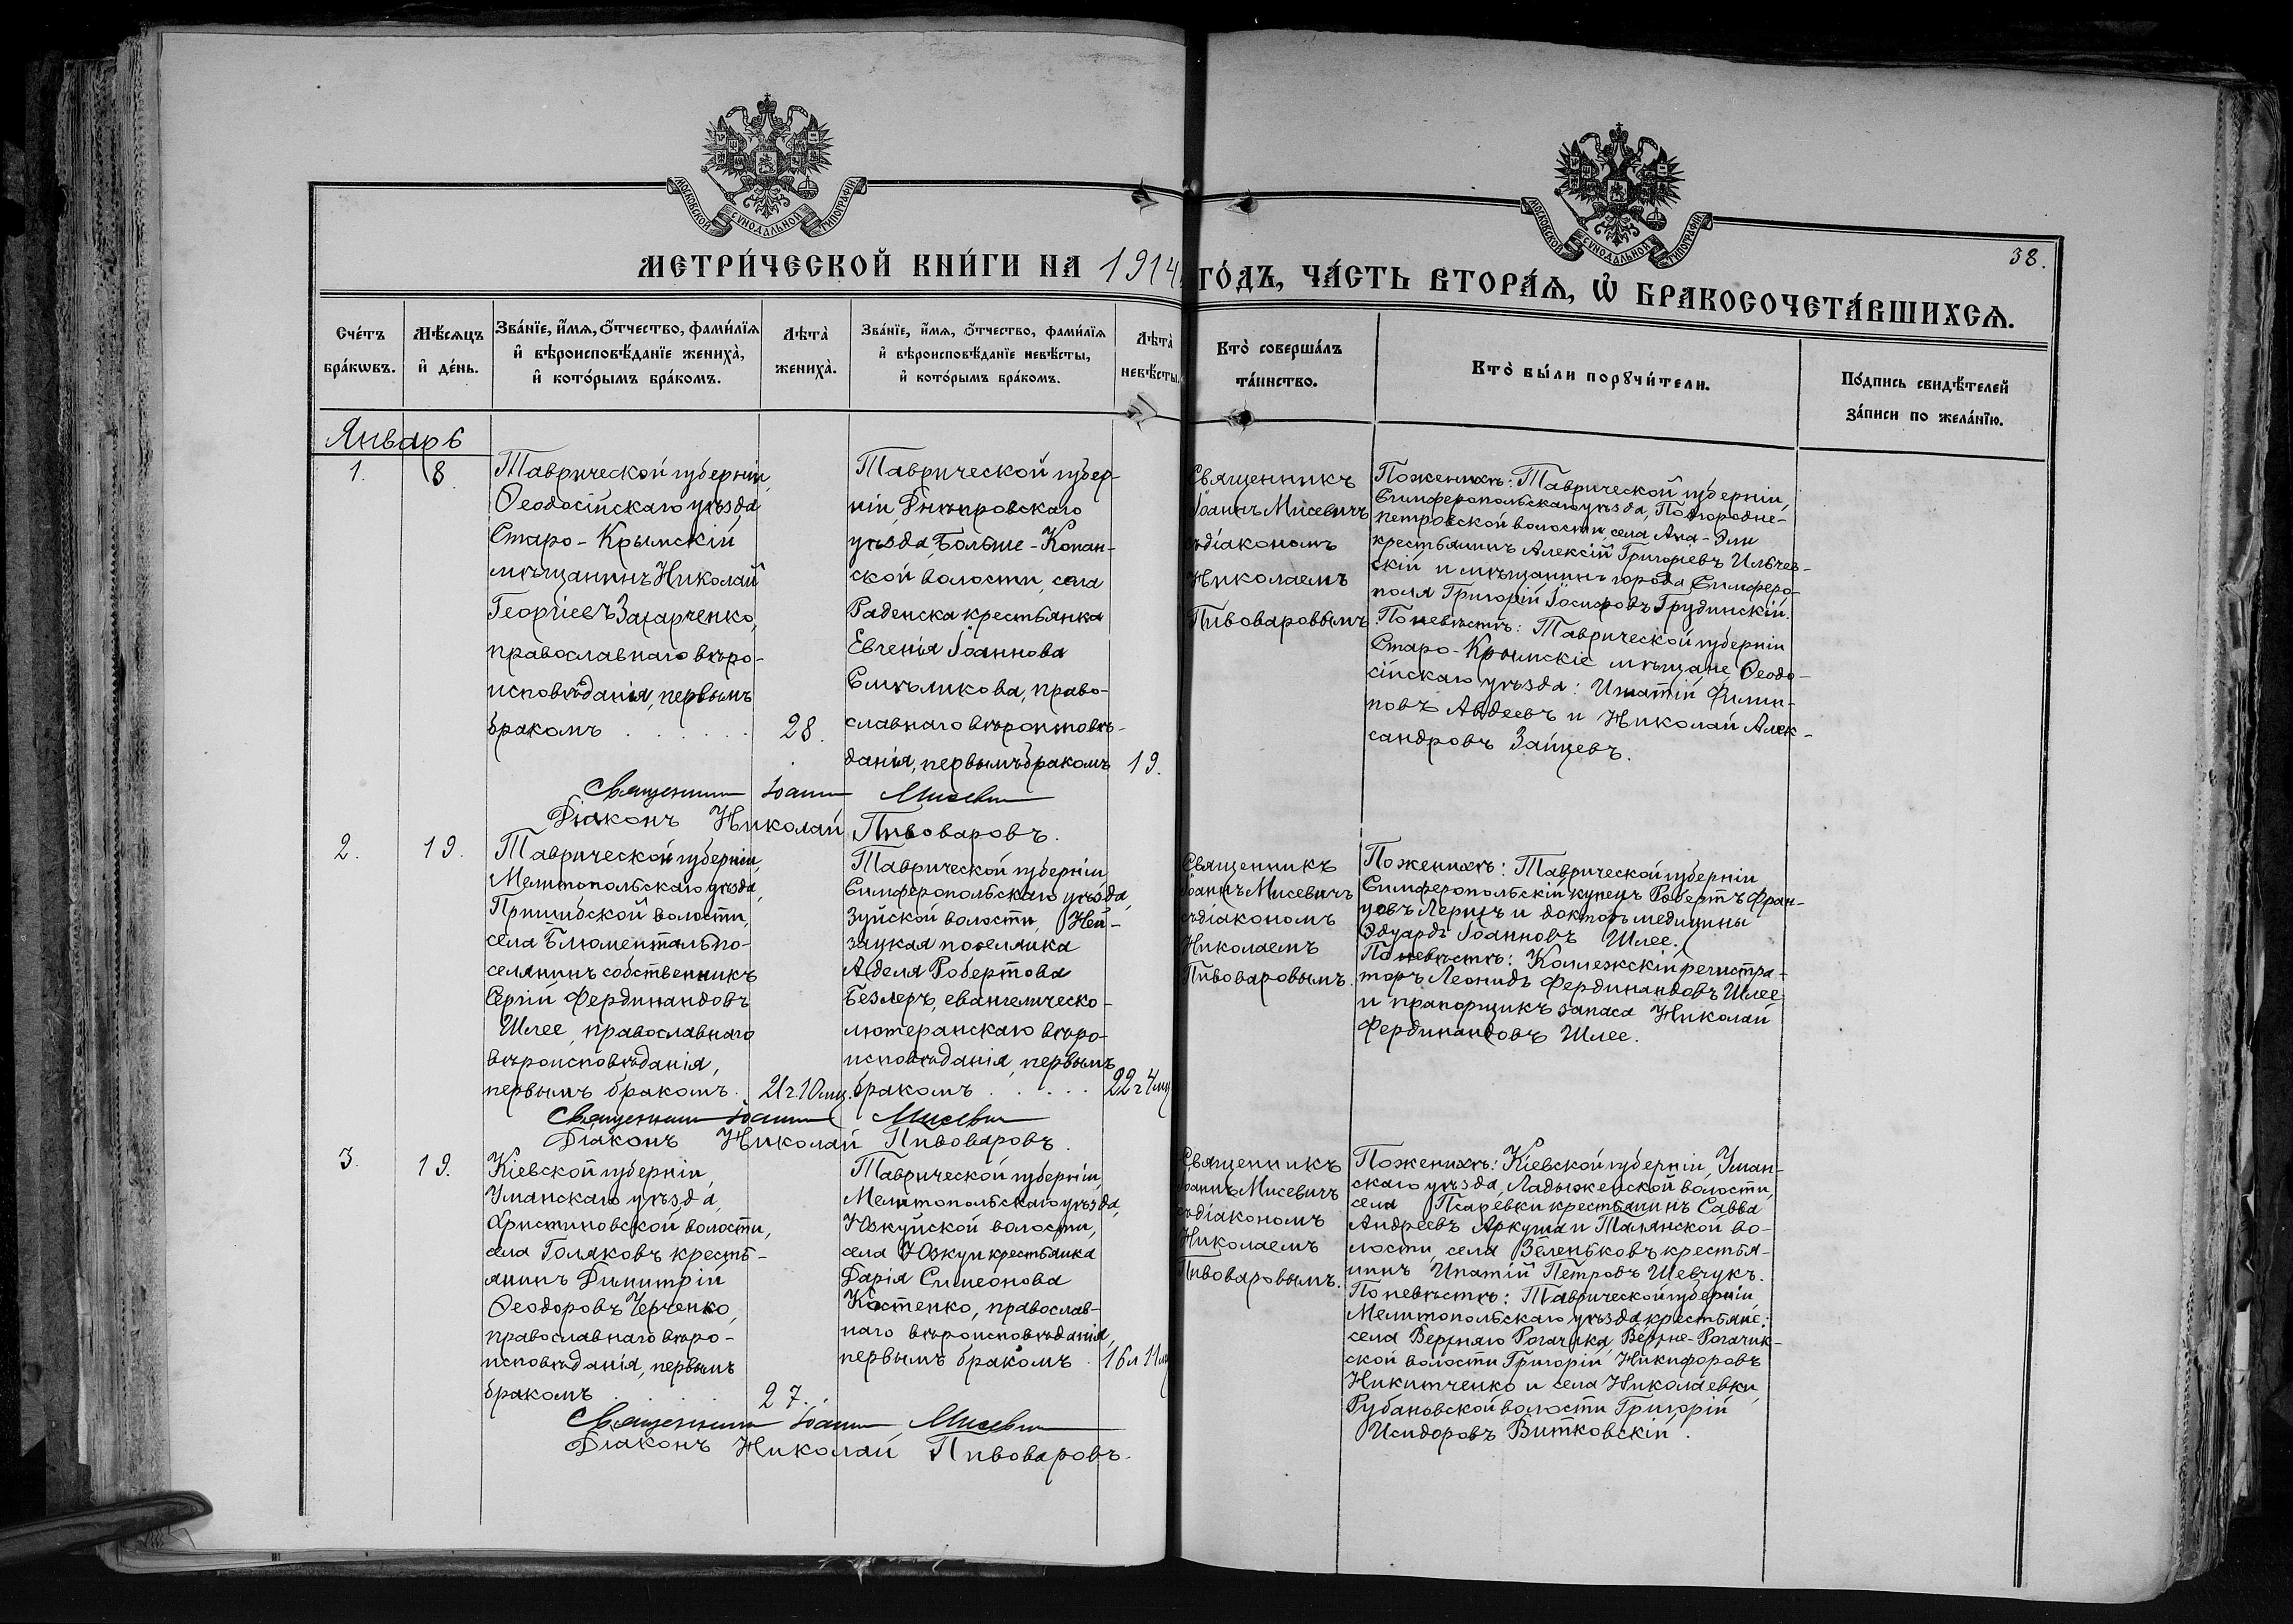 МОСКОВСКОЙ СѴНОДАЛЬНОЙ ТИПОГРАФІИ
МОСКОВСКОЙ СѴНОДАЛЬНОЙ ТИПОГРАФІИ
38.
МЕТРИ́ЧЕСКОЙ КНИ́ГИ НА 1914
ГО́ДЪ, ЧА́СТЬ ВТОРА́Ѧ, Ѡ҆ БРАКОСОЧЕТА́ВШИХСѦ.
Сче́тъ
бра́кѡвъ.
Мѣ́сѧцъ
и҆ де́нь.
Зва́нїе, и҆́мѧ, ѻ҆́тчество, фами́лїѧ
и҆ вѣроисповѣ́данїе жениха̀,
и҆ кото́рымъ бра́комъ.
Лѣта̀
жениха̀.
Зва́нїе, и҆́мѧ, ѻ҆́тчество, фами́лїѧ
и҆ вѣроисповѣ́данїе невѣ́сты,
и҆ кото́рымъ бра́комъ.
Лѣта̀
невѣ́сты.
Кто̀ соверша́лъ
та́инство.
Кто̀ бы́ли порꙋчи́тели.
По́дпись свидѣ́телей
за́писи по жела́нїю.
Январь
1.
8.
Таврической губерніи,
Ѳеодосійскаго уѣзда
Старо-Крымскій
мѣщанинъ Николай
Георгіевъ Захарченко,
православнаго вѣро-
исповѣданія, первымъ
бракомъ . . . . . .
28.
Таврической губер-
ніи, Днѣпровскаго
уѣзда, Больше-Копан-
ской волости, села
Раденска крестьянка
Евгенія Іоаннова
Смѣликова, право-
славнаго вѣроисповѣ-
данія, первымъ бракомъ
19.
Священникъ
Іоаннъ Мисевичъ
съ діакономъ
Николаемъ
Пивоваровымъ.
По женихѣ: Таврической губерніи,
Симферопольскаго уѣзда, Подгородне-
петровской волости, села Ана-Эли
крестьянинъ Алексій Григоріевъ Ильчев-
скій и мѣщанинъ города Симферо-
поля Григорій Іосифовъ Грудинскій.
По невѣстѣ: Таврической губерніи
Старо-Крымскіе мѣщане, Ѳеодо-
сійскаго уѣзда: Ипатій Филип-
повъ Авдеевъ и Николай Алек-
сандровъ Зайцевъ.
Священникъ Іоаннъ Мисевичъ
Діаконъ Николай Пивоваровъ.
2.
19.
Таврической губерніи,
Мелитопольскаго уѣзда,
Пришибской волости,
села Блюменталь по-
селянинъ собственникъ
Сергій Фердинандовъ
Шлее, православнаго
вѣроисповѣданія,
первымъ бракомъ.
21 г. 10 мц.
Таврической губерніи
Симферопольскаго уѣзда,
Зуйской волости, Ней-
зацкая поселянка
Аделя Робертова
Безлеръ, евангелическо-
лютеранскаго вѣро-
исповѣданія, первымъ
бракомъ . . . . .
22 г 4 мц
Священникъ
Іоаннъ Мисевичъ
съ діакономъ
Николаемъ
Пивоваровымъ.
По женихѣ: Таврической губерніи
Симферопольскій купецъ Робертъ Фран-
цовъ Лерихъ и докторъ медицины
Эдуардъ Іоанновъ Шлее.
По невѣстѣ: Коллежскій регистра-
торъ Леонидъ Фердинандовъ Шлее
и прапорщикъ запаса Николай
Фердинандовъ Шлее.
Священникъ Іоаннъ Мисевичъ
Діаконъ Николай Пивоваровъ.
3.
19.
Кіевской губерніи,
Уманскаго уѣзда,
Христиновской волости,
села Голяковъ кресть-
янинъ Димитрій
Ѳеодоровъ Черченко,
православнаго вѣро-
исповѣданія, первымъ
бракомъ . . . . .
27.
Таврической губерніи,
Мелитопольскаго уѣзда,
Юзкуйской волости,
села Юзкуи крестьянка
Дарія Симеонова
Костенко, православ-
наго вѣроисповѣданія,
первымъ бракомъ .
16 л 11 мц
Священникъ
Іоаннъ Мисевичъ
съ діакономъ
Николаемъ
Пивоваровымъ.
По женихѣ: Кіевской губерніи, Уман-
скаго уѣзда, Ладыженской волости,
села Псаревки крестьянинъ Савва
Андреевъ Аркуша и Талянской во-
лости, села Зеленьковъ крестья-
нинъ Ипатій Петровъ Шевчукъ.
По невѣстѣ: Таврической губерніи
Мелитопольскаго уѣзда крестьяне:
села Верхняго Рогачика, Верхне-Рогачик-
ской волости Григорій Никифоровъ
Никитченко и села Николаевки,
Рубановской волости Григорій
Исидоровъ Витковскій.
Священникъ Іоаннъ Мисевичъ
Діаконъ Николай Пивоваровъ.